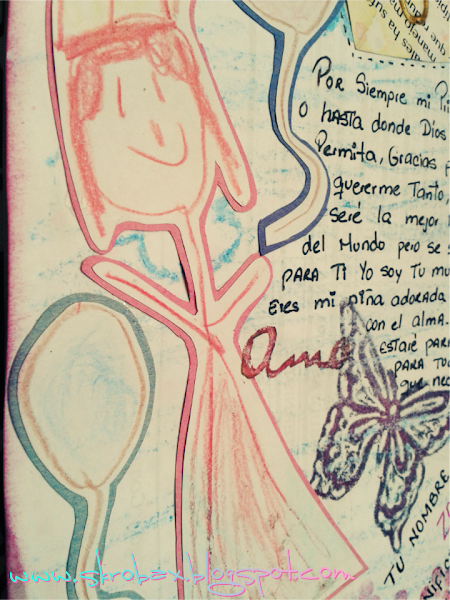 Por Siempre mi
o hasta donde Dios
Permita, Gracias
quererme Tanto,
seré la mejor
del Mundo pero se
PARA Ti Yo soy Tu
Eres mi niña adorada
con el alma.
Amo
ESTARÉ
PARA
que
TU NOMBRE
www.skrobax.blogspot.com